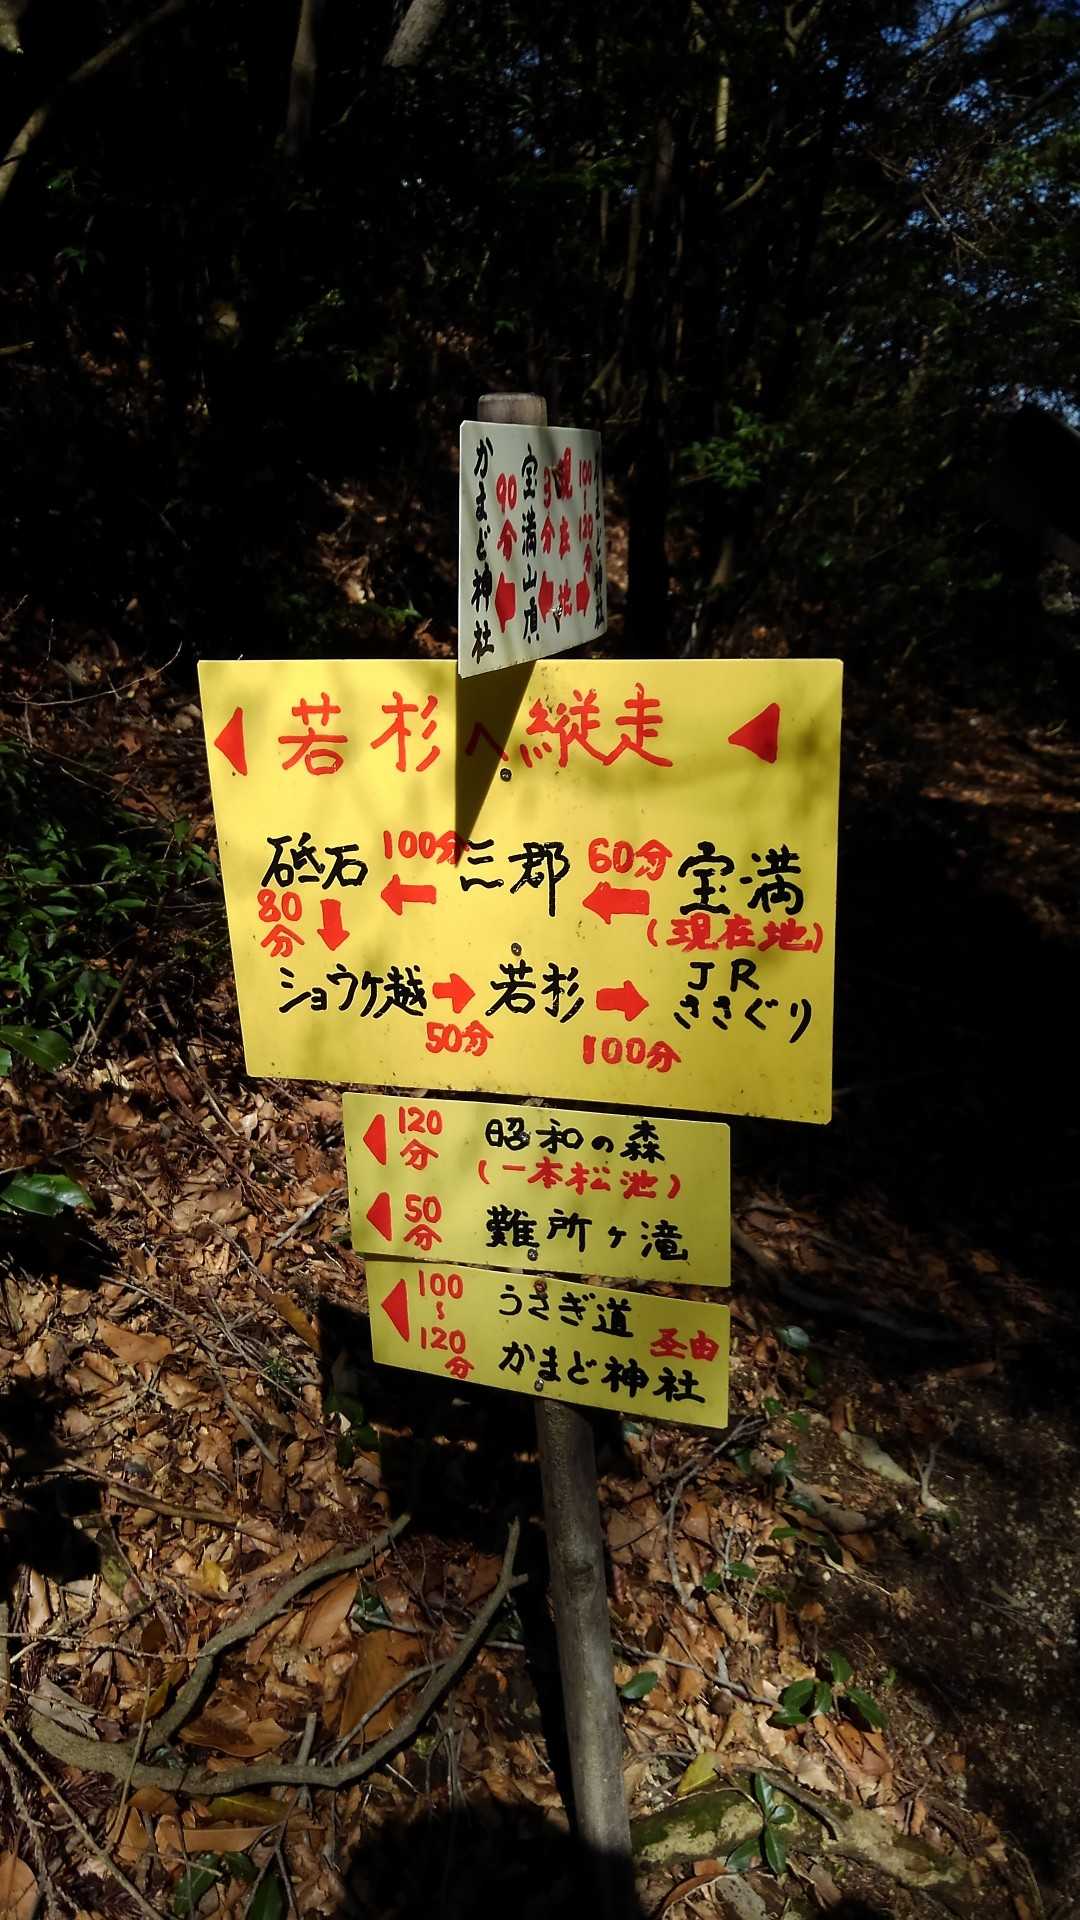 かまど神社
90分
宝満山頂
3分
現在地
100~120分
かまど神社
若杉へ縦走
砥石 100分 三郡 60分 宝満
80分
(現在地)
ショウケ越 若杉 JR
ささぐり
50分 100分
120分 昭和の森
(一本松池)
50分 難所ヶ滝
100~120分 うさぎ道
圣由
かまど神社